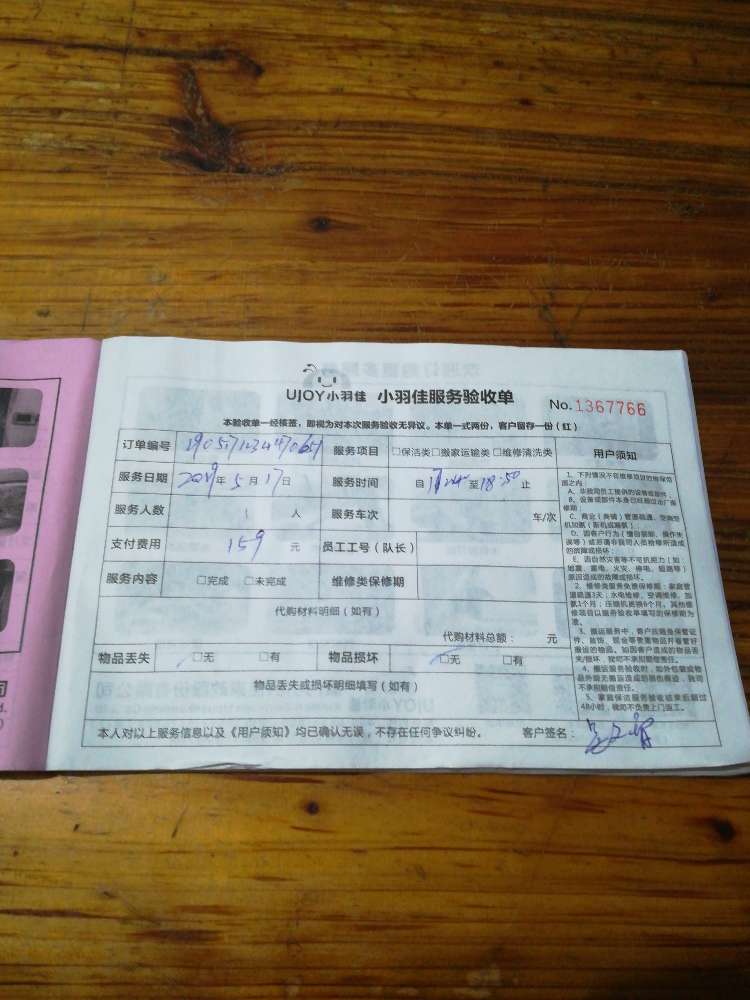 UJOY小羽佳 小羽佳服务验收单 No.1367766
本验收单一经核签，即视为对本次服务验收无异议。本单一式两份，客户留存一份（红）
订单编号 服务项目 □保洁类□搬家运输类□维修清洗类 用户须知
服务日期 2019年5月17日 服务时间 自 至18:50止
服务人数 1 人 服务车次 车/次
支付费用 159 元 员工工号（队长）
服务内容 □完成 □未完成 维修类保修期
代购材料明细（如有）
代购材料总额： 元
物品丢失 □无 □有 物品损坏 □无 □有
物品丢失或损坏明细填写（如有）
本人对以上服务信息以及《用户须知》均已确认无误，不存在任何争议纠纷。 客户签名：
1、下列情况不在维修项目的维保范
围之内：
A、非我司员工提供的设备或部件；
B、设备或部件本身已经超过出厂保
修期；
C、商业（商铺）管道疏通、空调空
机加氟（新机或隔氟）；
D、因客户行为（擅自装卸、操作失
误等）或邀请非我司人员检修所造成
的故障或损坏；
E、因自然灾害等不可抗能力（如：
地震、雷电、火灾、停电、短路等）
原因造成的故障或损坏。
2、维修类服务免费保修期：家庭管
道疏通3天；水电维修、空调维修、加
氨1个月；压缩机更换6个月。其他维
修项目以服务单填写的保修期为
准。
3、搬运服务中，客户应随身保管证
件、首饰、现金等贵重物品并看管好
搬运的物品。如因客户造成的物品丢
失/损坏，我司不承担赔偿责任。
4、搬运服务验收时，如外包装或物
品外观无搬运造成的损伤痕迹，我司
不承担赔偿责任。
5、家庭保洁服务验收结束后超过
48小时，我司不负责上门返工。